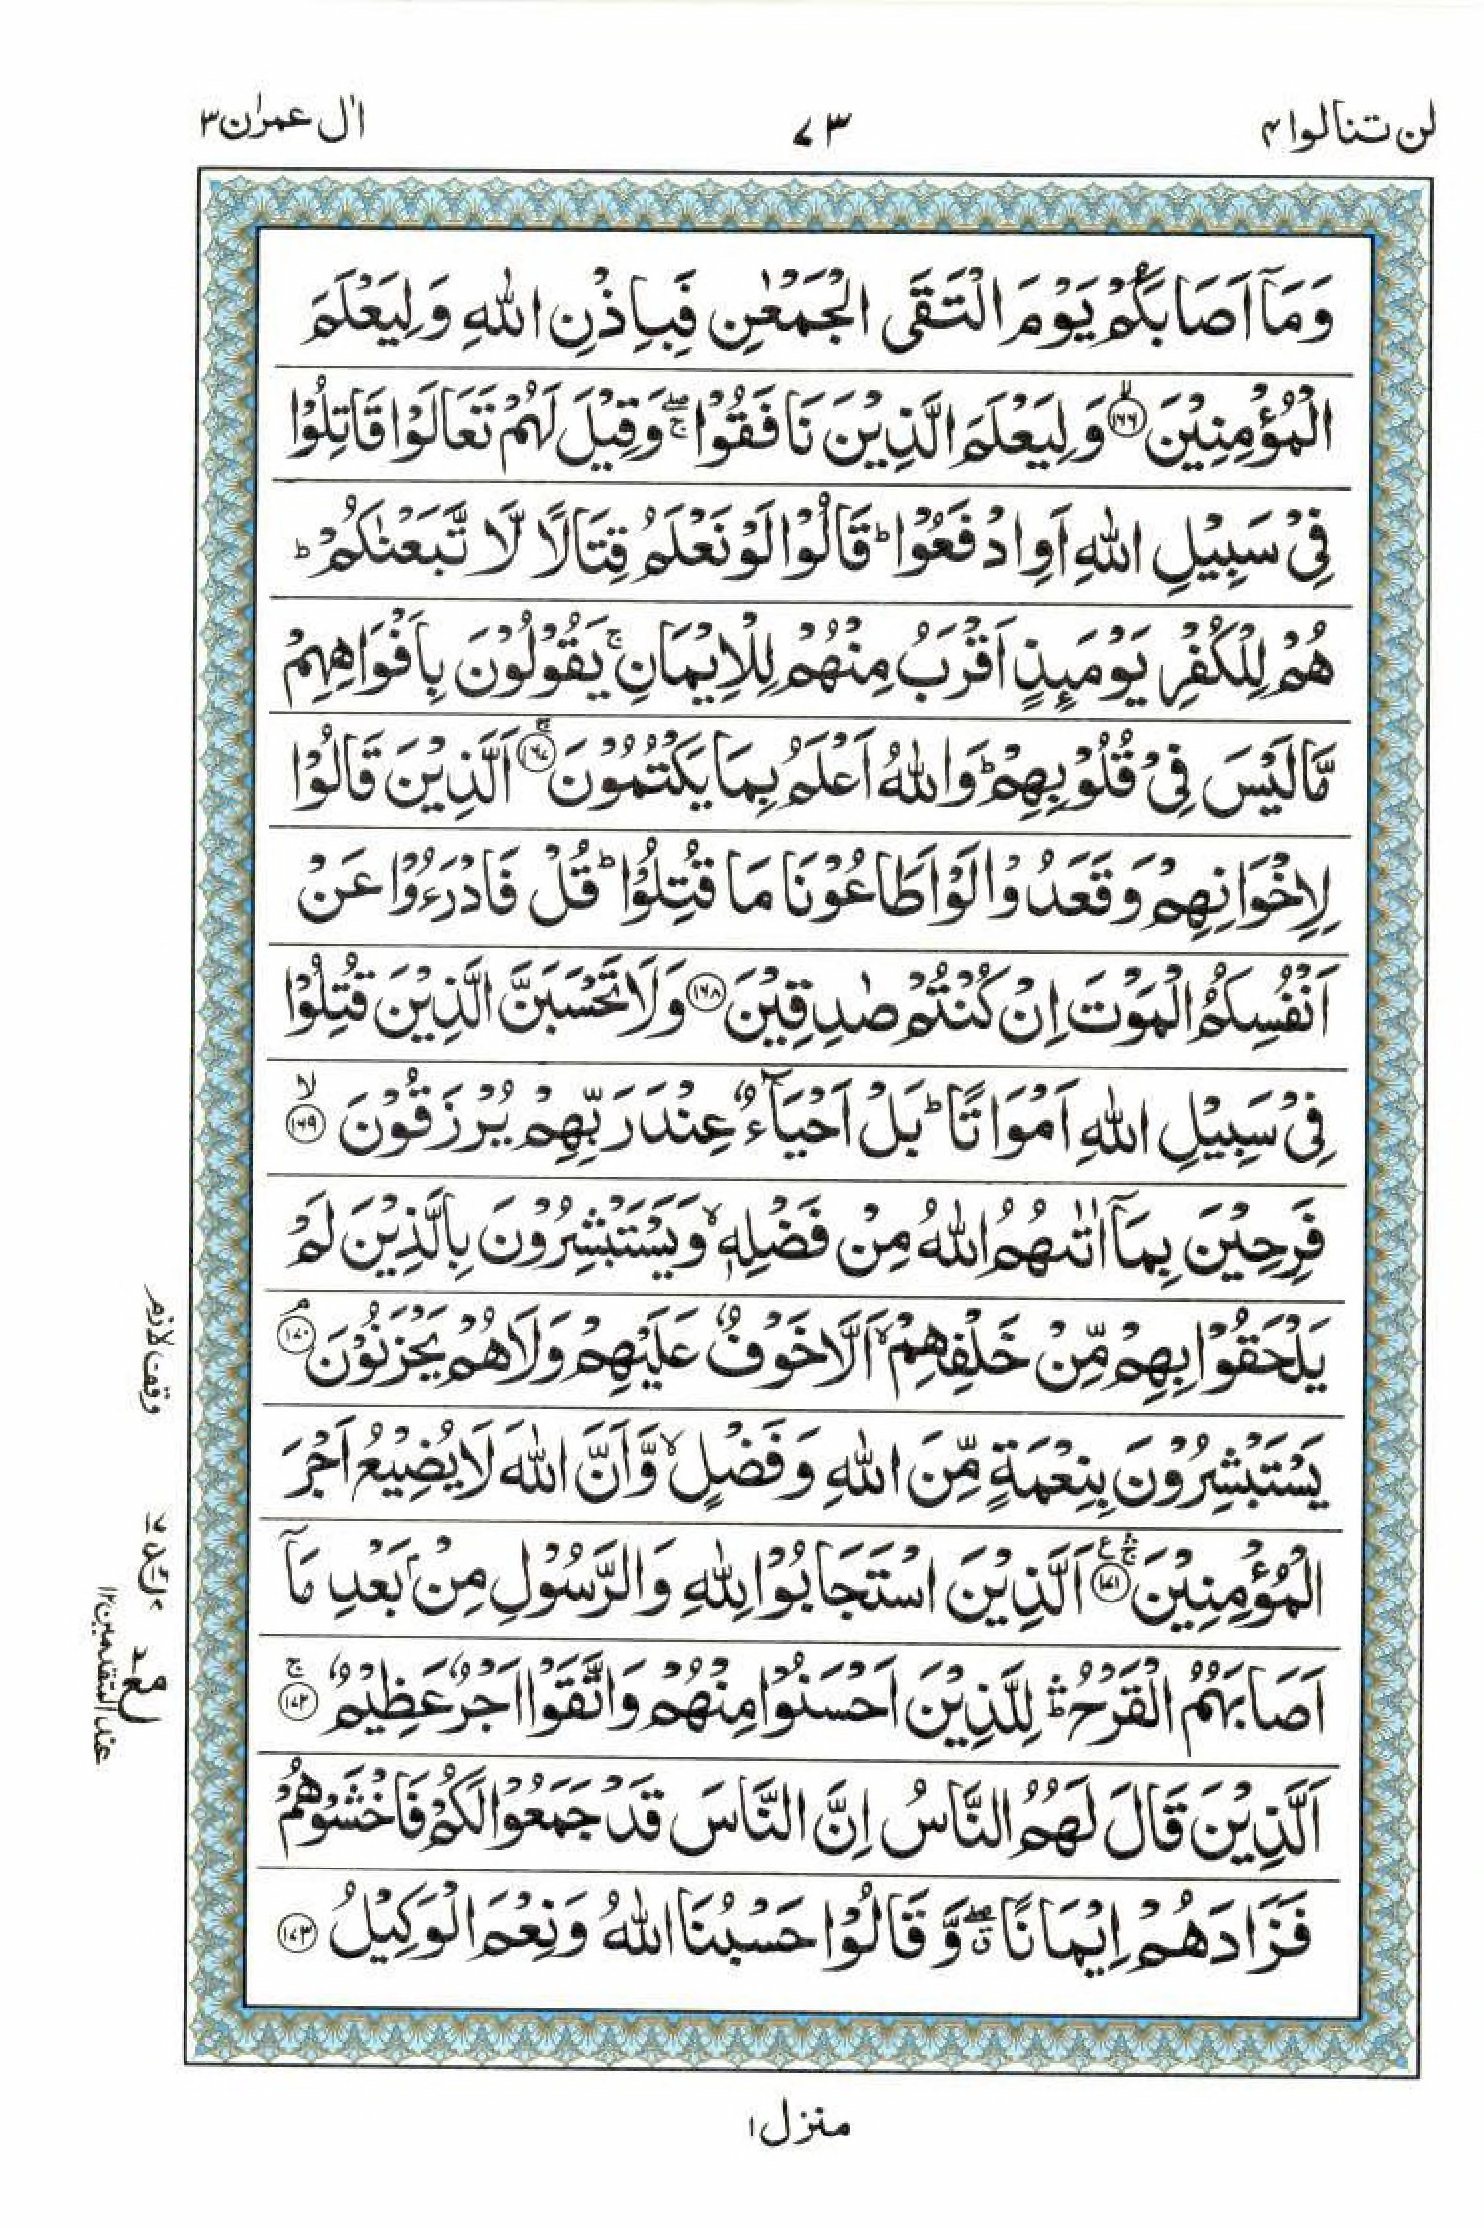 لن تنالوا ۴
۷۳
اٰل عمرٰن ۳
وَمَآ اَصَابَكُمْ يَوْمَ الْتَقَى الْجَمْعٰنِ فَبِاِذْنِ اللّٰهِ وَلِيَعْلَمَ
الْمُؤْمِنِيْنَ ۙ‏﴿۱۶۶﴾ وَلِيَعْلَمَ الَّذِيْنَ نَافَقُوْا ۖۚ وَقِيْلَ لَهُمْ تَعَالَوْا قَاتِلُوْا
فِيْ سَبِيْلِ اللّٰهِ اَوِ ادْفَعُوْا ؕ قَالُوْا لَوْ نَعْلَمُ قِتَالًا لَّا تَّبَعْنٰكُمْ ؕ
هُمْ لِلْكُفْرِ يَوْمَىِٕذٍ اَقْرَبُ مِنْهُمْ لِلْاِيْمَانِ ۚ يَقُوْلُوْنَ بِاَفْوَاهِهِمْ
مَّا لَيْسَ فِيْ قُلُوْبِهِمْ ؕ وَاللّٰهُ اَعْلَمُ بِمَا يَكْتُمُوْنَ ۚ‏﴿۱۶۷﴾ اَلَّذِيْنَ قَالُوْا
لِاِخْوَانِهِمْ وَقَعَدُوْا لَوْ اَطَاعُوْنَا مَا قُتِلُوْا ؕ قُلْ فَادْرَءُوْا عَنْ
اَنْفُسِكُمُ الْمَوْتَ اِنْ كُنْتُمْ صٰدِقِيْنَ ﴿۱۶۸﴾ وَلَا تَحْسَبَنَّ الَّذِيْنَ قُتِلُوْا
فِيْ سَبِيْلِ اللّٰهِ اَمْوَاتًا ؕ بَلْ اَحْيَآءٌ عِنْدَ رَبِّهِمْ يُرْزَقُوْنَ ۙ‏﴿۱۶۹﴾
فَرِحِيْنَ بِمَآ اٰتٰىهُمُ اللّٰهُ مِنْ فَضْلِهٖ ۙ وَيَسْتَبْشِرُوْنَ بِالَّذِيْنَ لَمْ
يَلْحَقُوْا بِهِمْ مِّنْ خَلْفِهِمْ ۙ اَلَّا خَوْفٌ عَلَيْهِمْ وَلَا هُمْ يَحْزَنُوْنَ ۘ‏﴿۱۷۰﴾
يَسْتَبْشِرُوْنَ بِنِعْمَةٍ مِّنَ اللّٰهِ وَفَضْلٍ ۙ وَّاَنَّ اللّٰهَ لَا يُضِيْعُ اَجْرَ
الْمُؤْمِنِيْنَ ۛۚ ع ﴿۱۷۱﴾ اَلَّذِيْنَ اسْتَجَابُوْا لِلّٰهِ وَالرَّسُوْلِ مِنْۢ بَعْدِ مَآ
اَصَابَهُمُ الْقَرْحُ ۛؕ لِلَّذِيْنَ اَحْسَنُوْا مِنْهُمْ وَاتَّقَوْا اَجْرٌ عَظِيْمٌ ۚ‏﴿۱۷۲﴾
اَلَّذِيْنَ قَالَ لَهُمُ النَّاسُ اِنَّ النَّاسَ قَدْ جَمَعُوْا لَكُمْ فَاخْشَوْهُمْ
فَزَادَهُمْ اِيْمَانًا ۖۗ وَّقَالُوْا حَسْبُنَا اللّٰهُ وَنِعْمَ الْوَكِيْلُ ﴿۱۷۳﴾
وقف لازم
عند المتقدمين ۱۲
منزل ۱